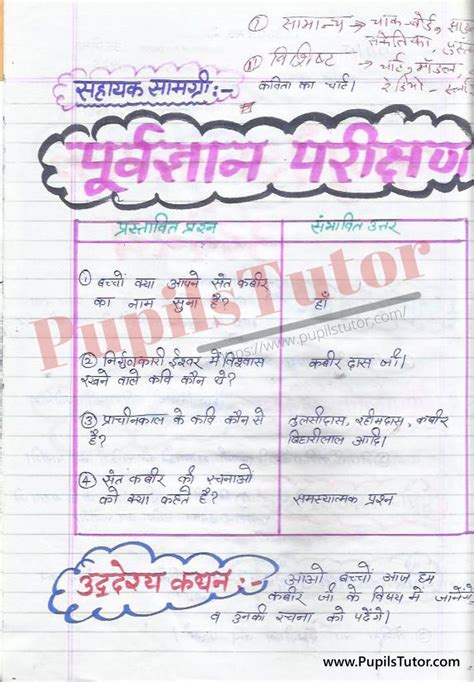 ① सामान्य → चाक-बोर्ड, झाड़न
संकेतिका,
ii) विशिष्ट → चार्ट, मॉडल,
सहायक सामग्री:- कविता का चार्ट। रेडियो -
पूर्वज्ञान परीक्षण
प्रस्तावित प्रश्न संभावित उत्तर
① बच्चों क्या आपने संत कबीर
का नाम सुना है? हाँ
PupilsTutor
https://www.pupilstutor.com/
② निर्गुणकारी ईश्वर में विश्वास
रखने वाले कवि कौन थे? कबीर दास जी।
③ प्राचीनकाल के कवि कौन से
है? तुलसीदास, रहीमदास, कबीर
बिहारीलाल आदि।
④ संत कबीर की रचनाओं
को क्या कहते है? समस्यात्मक प्रश्न
उद्देश्य कथन:- आओ बच्चों आज हम
कबीर जी के विषय में जानेंगे
व उनकी रचना को पढेंगे।
www.PupilsTutor.com